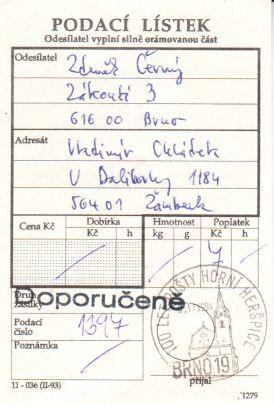 PODACÍ LÍSTEK
Odesílatel vyplní silně orámovanou část
Odesílatel
Zdeněk Černý
Zákoutí 3
616 00 Brno
Adresát
Vladimír
U Daliborky 1184
564 01 Žamberk
Cena Kč Dobírka Hmotnost Poplatek
Kč h kg g Kč h
Druh zásilky
Doporučeně
100 LET POŠTY HORNÍ HERŠPICE
BRNO 19
Podací číslo
1397
Poznámka
přijal
11 - 036 (II-93)
1279